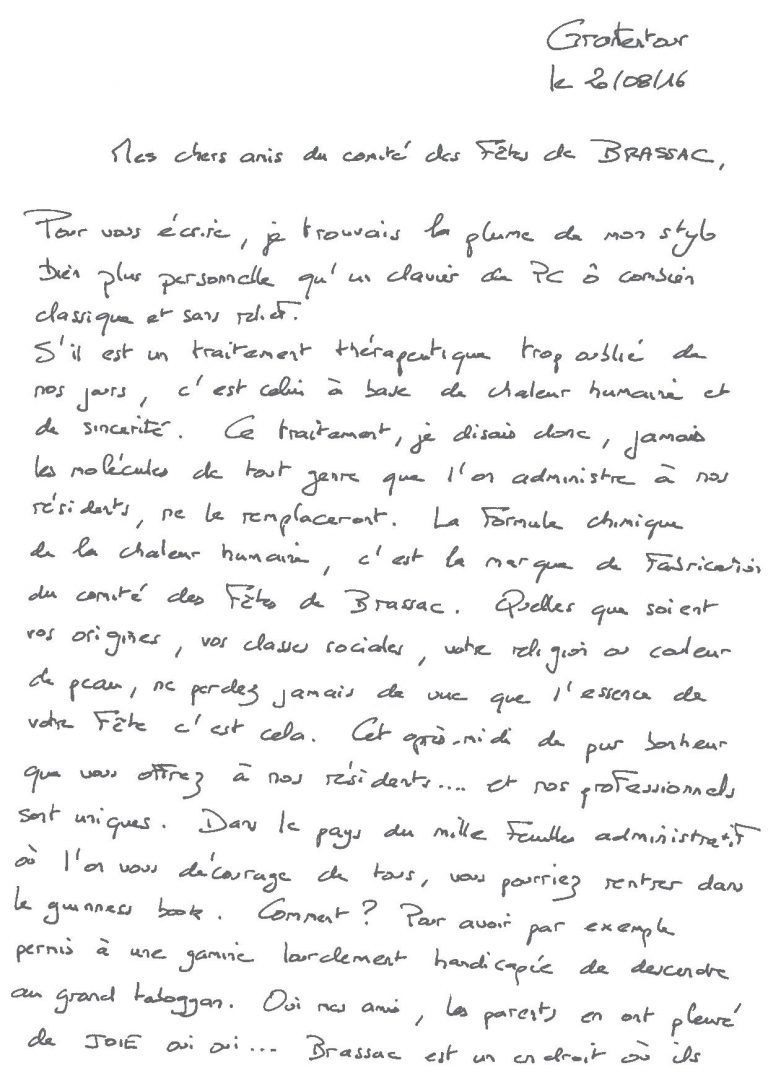 Grostentour
le 20/08/16
Mes chers amis du comité des Fêtes de BRASSAC,
Pour vous écrire, je trouvais la plume de mon stylo
bien plus personnelle qu'un clavier de PC ô combien
classique et sans relief.
S'il est un traitement thérapeutique trop oublié de
nos jours, c'est celui à base de chaleur humaine et
de sincérité. Ce traitement, je disais donc, jamais
les molécules de tout genre que l'on administre à nos
résidents, ne le remplaceront. La Formule chimique
de la chaleur humaine, c'est la marque de Fabrication
du comité des Fêtes de Brassac. Quelles que soient
vos origines, vos classes sociales, votre religion ou couleur
de peau, ne perdez jamais de vue que l'essence de
votre Fête c'est cela. Cet après-midi de pur bonheur
que vous offrez à nos résidents.... et nos professionnels
sont uniques. Dans le pays du mille Feuilles administratif
où l'on vous décourage de tous, vous pourriez rentrer dans
le guinness book. Comment ? Pour avoir par exemple
permis à une gamine lourdement handicapée de descendre
au grand toboggan. Oui mes amis, les parents en ont pleuré
de JOIE oui oui... Brassac est un endroit où ils